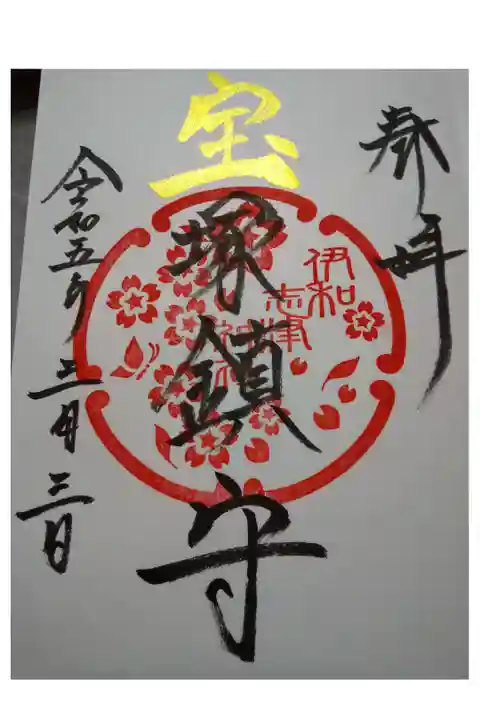 奉拝
宝塚鎮守
伊和
志津
神社
令和五年三月三日